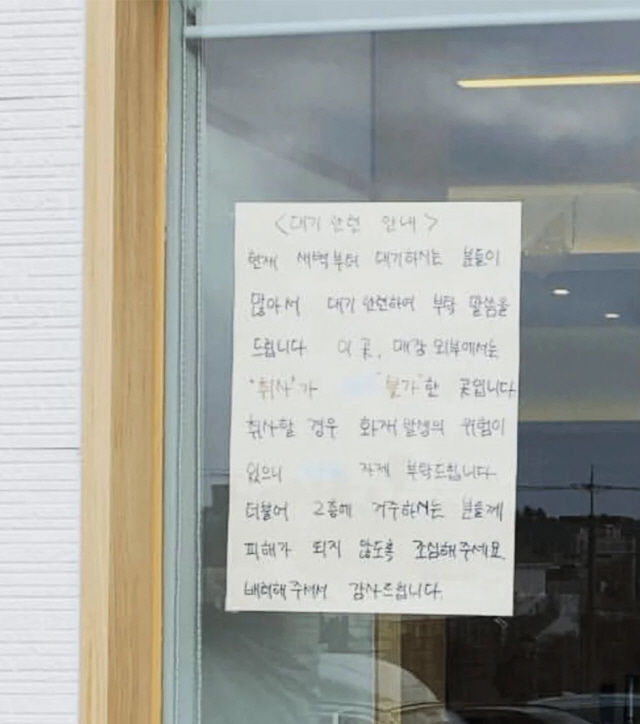 <대기 관련 안내>
현재 새벽부터 대기하시는 분들이
많아서 대기 관련하여 부탁 말씀을
드립니다. 이 곳, 매장 외부에서는
"취사"가 "불가"한 곳입니다
취사할 경우 화재 발생의 위험이
있으니 자제 부탁드립니다.
더불어 2층에 거주하시는 분들께
피해가 되지 않도록 조심해주세요.
배려해주셔서 감사드립니다.